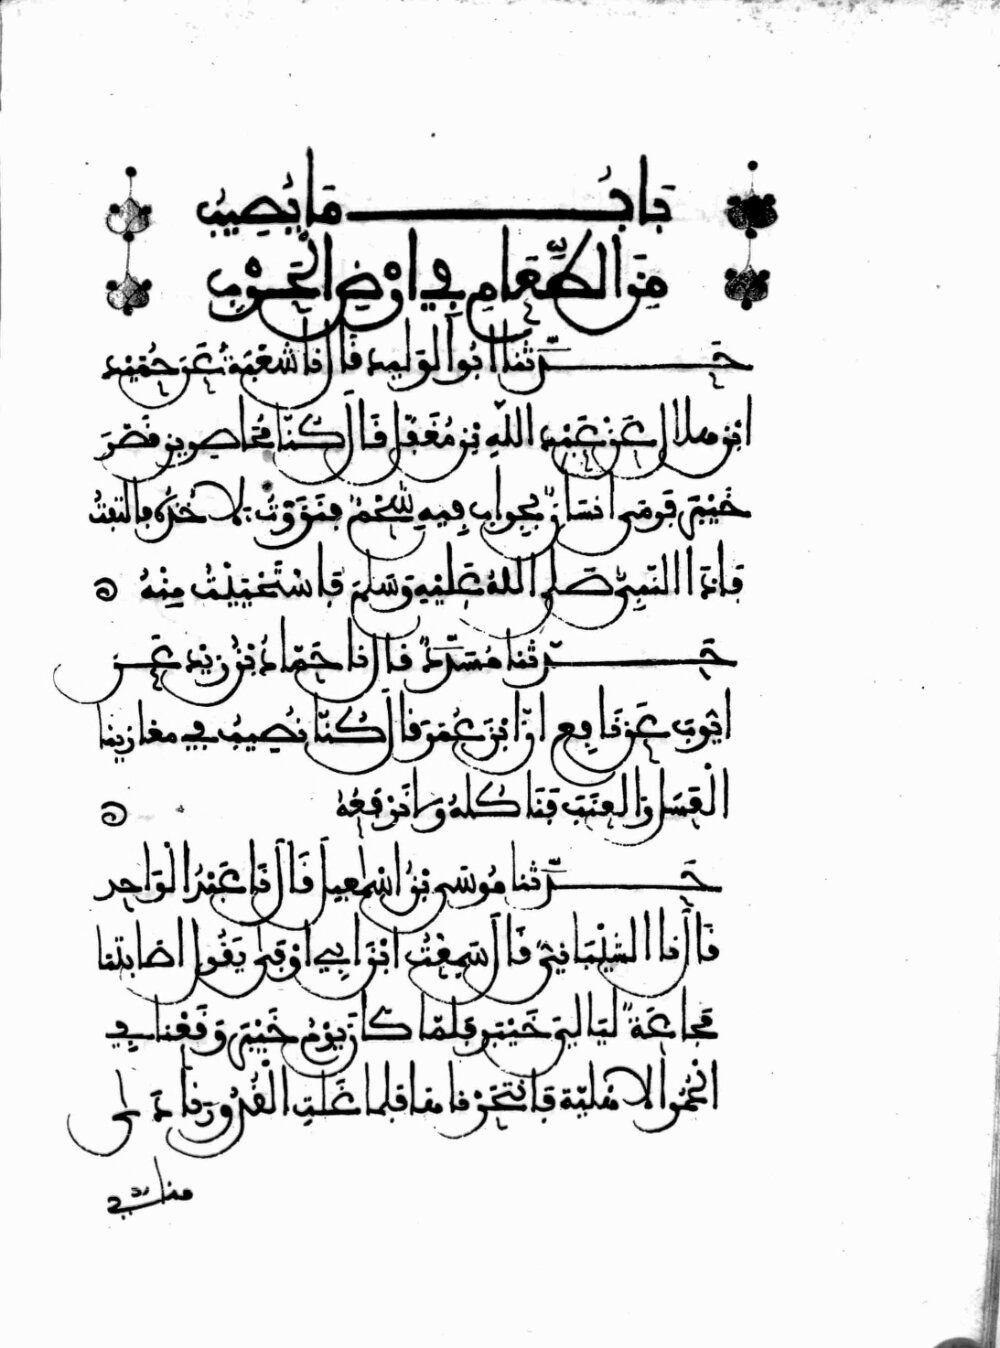 بَابُ مَا يُصِيبُ
مِنَ الطَّعَامِ فِي أَرْضِ الْحَرْبِ
حَدَّثَنَا أَبُو الْوَلِيدِ قَالَ نَا شُعْبَةُ عَنْ حُمَيْدِ
ابْنِ هِلَالٍ عَنْ عَبْدِ اللهِ بْنِ مُغَفَّلٍ قَالَ كُنَّا مُحَاصِرِينَ قَصْرَ
خَيْبَرَ فَرَمَى إِنْسَانٌ بِجِرَابٍ فِيهِ شَحْمٌ فَنَزَوْتُ لِآخُذَهُ فَالْتَفَتُّ
فَإِذَا النَّبِيُّ صَلَّى اللهُ عَلَيْهِ وَسَلَّمَ فَاسْتَحْيَيْتُ مِنْهُ
حَدَّثَنَا مُسَدَّدٌ قَالَ نَا حَمَّادُ بْنُ زَيْدٍ عَنْ
أَيُّوبَ عَنْ نَافِعٍ أَنَّ ابْنَ عُمَرَ قَالَ كُنَّا نُصِيبُ فِي مَغَازِينَا
الْعَسَلَ وَالْعِنَبَ فَنَأْكُلُهُ وَلَا نَرْفَعُهُ
حَدَّثَنَا مُوسَى بْنُ إِسْمَاعِيلَ قَالَ نَا عَبْدُ الْوَاحِدِ
قَالَ نَا الشَّيْبَانِيُّ قَالَ سَمِعْتُ ابْنَ أَبِي أَوْفَى يَقُولُ أَصَابَتْنَا
مَجَاعَةٌ لَيَالِيَ خَيْبَرَ فَلَمَّا كَانَ يَوْمُ خَيْبَرَ وَقَعْنَا فِي
الْحُمُرِ الْأَهْلِيَّةِ فَانْتَحَرْنَاهَا فَلَمَّا غَلَتِ الْقُدُورُ نَادَى
مناد